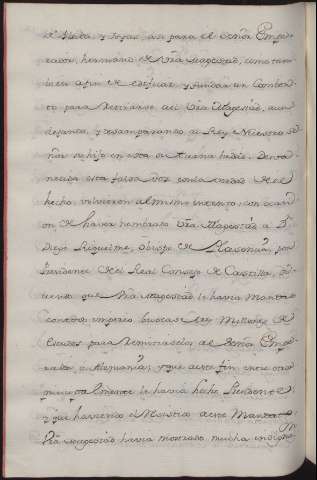 y Joyas asi para el Señor Empe-
rador, hermano de Vra Magestad, como tam-
bien a fin de edificar, y fundar un Conben-
to para retirarse alli Vra Magestad, aun
dejando, y desamparando al Rey Nuestro Se-
ñor su hijo en esta tierna hedad. Desva-
necida esta falsa voz con la verdad de el
hecho, volvieron al mismo intento, con ocasi-
on de haver nombrado Vra Magestad a Dn
Diego Riquelme, Obispo de Plasencia, por
Presidente de el Real Consejo de Castilla, di-
ciendo que Vra Magestad le havia
buscase tres Millones de
Escudos para remitirselos al Señor Empe-
rador a Alemania, y que a este fin entre otros
le havia hecho Presidente
y que haviendo el Ministro
Vra Magestad havia mostrado mucha indigna-